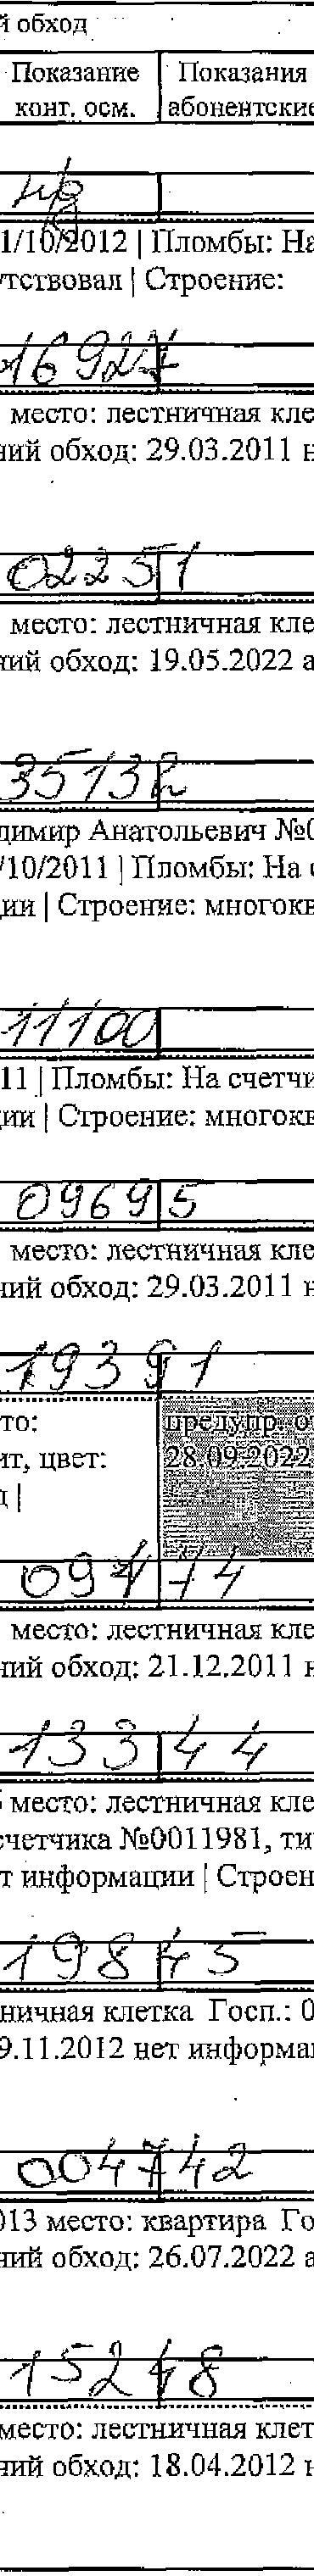 й обход
Показание Показания
конт. осм. абонентские
1/10/2012 | Пломбы: На
тствовал | Строение:
16927
место: лестничная кле
ний обход: 29.03.2011 н
02251
место: лестничная кле
ний обход: 19.05.2022 а
35132
димир Анатольевич №0
/10/2011 | Пломбы: На с
ции | Строение: многокв
11100
11 | Пломбы: На счетчи
ции | Строение: многокв
09695
место: лестничная кле
ний обход: 29.03.2011 н
19391
то: предупр. о
ит, цвет: 28.09.2022
д |
место: лестничная кле
ний обход: 21.12.2011 н
13344
место: лестничная кле
счетчика №0011981, ти
т информации | Строен
19845
ничная клетка Госп.: 0
9.11.2012 нет информа
004742
013 место: квартира Го
ний обход: 26.07.2022 а
15248
место: лестничная клет
ний обход: 18.04.2012 н